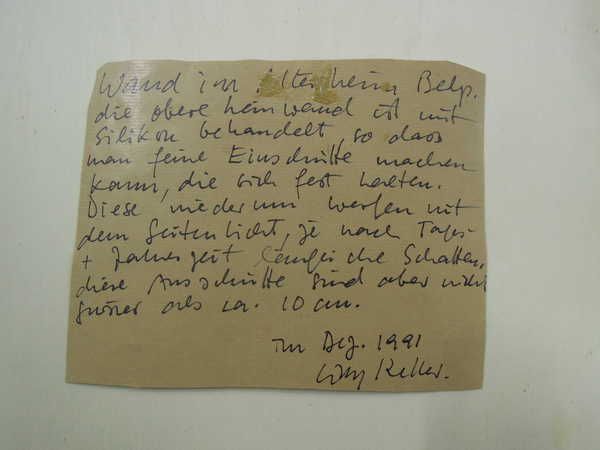 Wand im Altersheim Belp.
die obere Leinwand ist mit
Silikon behandelt, so dass
man feine Einschnitte machen
kann, die sich fest halten.
Diese wiederum werfen mit
dem Seitenlicht, je nach Tages
+ Jahreszeit, längliche Schatten.
diese Ausschnitte sind aber nicht
grösser als ca. 10 cm.
im Dez. 1991
Keller.